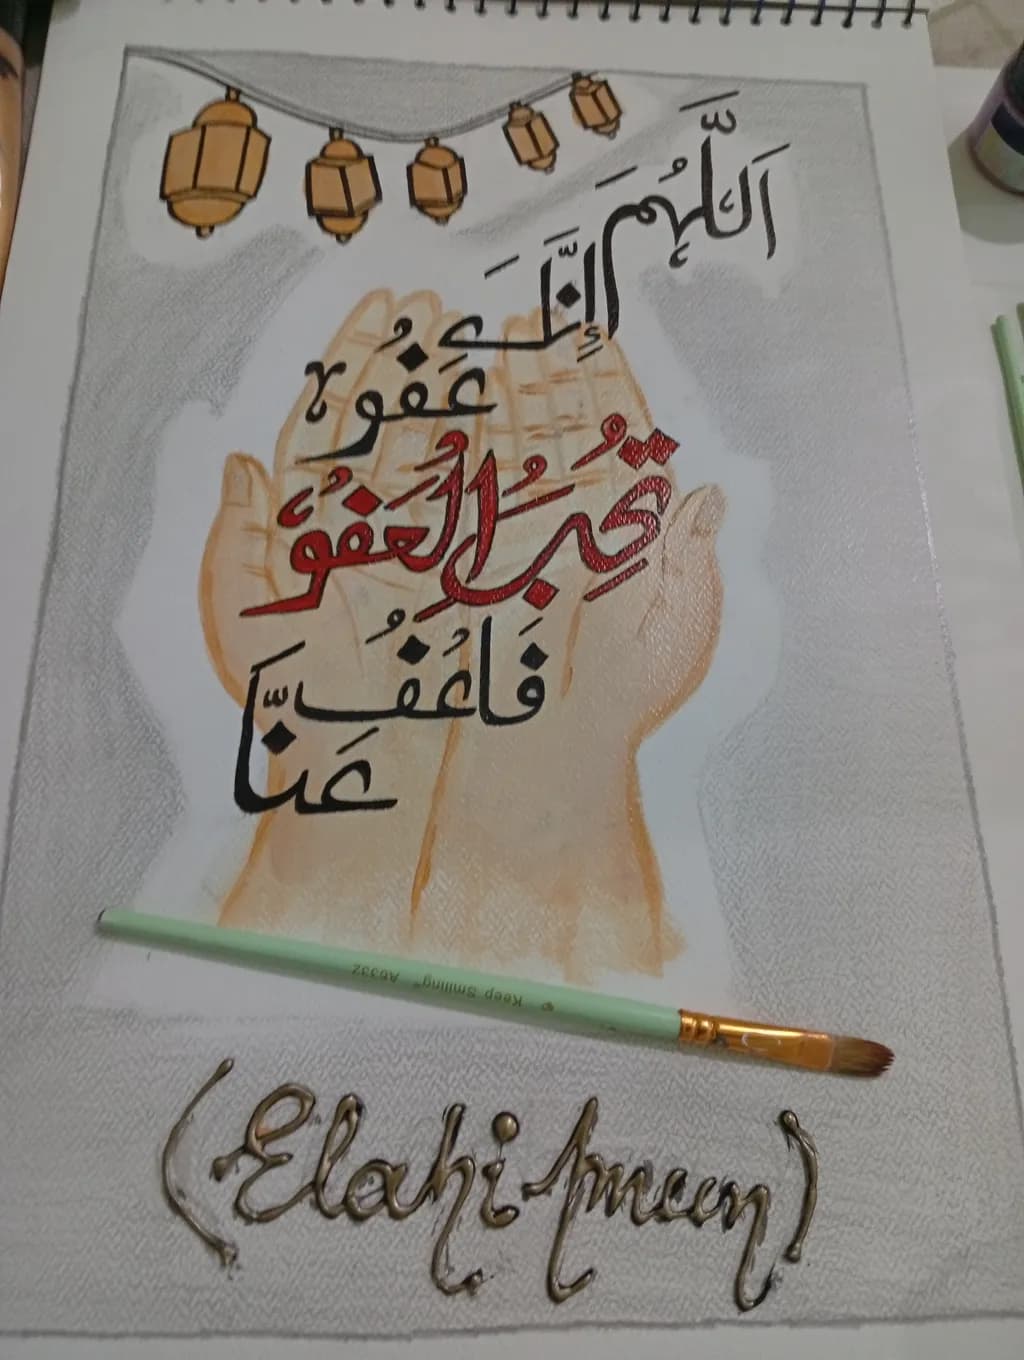 اَللّٰهُمَّ
إِنَّكَ
عَفُوٌّ
تُحِبُّ الْعَفْوَ
فَاعْفُ
عَنَّا
Keep Smiling® A6332
(Elahi Ameen)